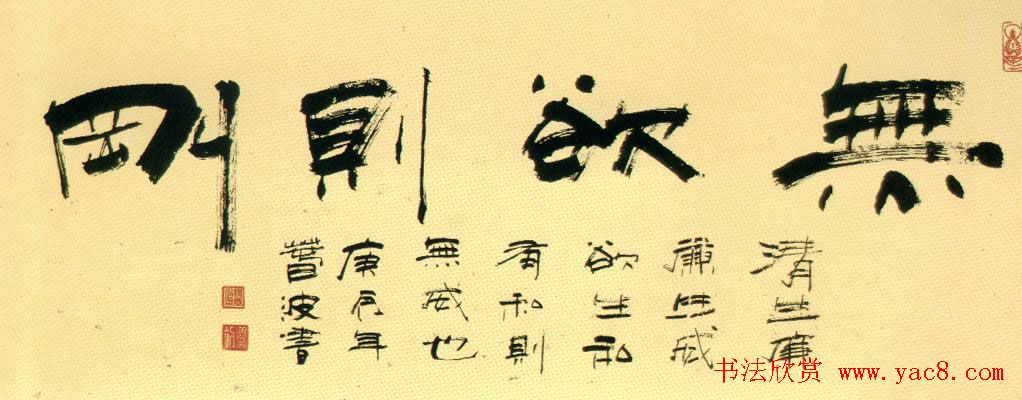 無欲則剛
清生廉
廉生威
欲生私
有私則
無威也
庚辰年
波書
书法欣赏 www.yac8.com